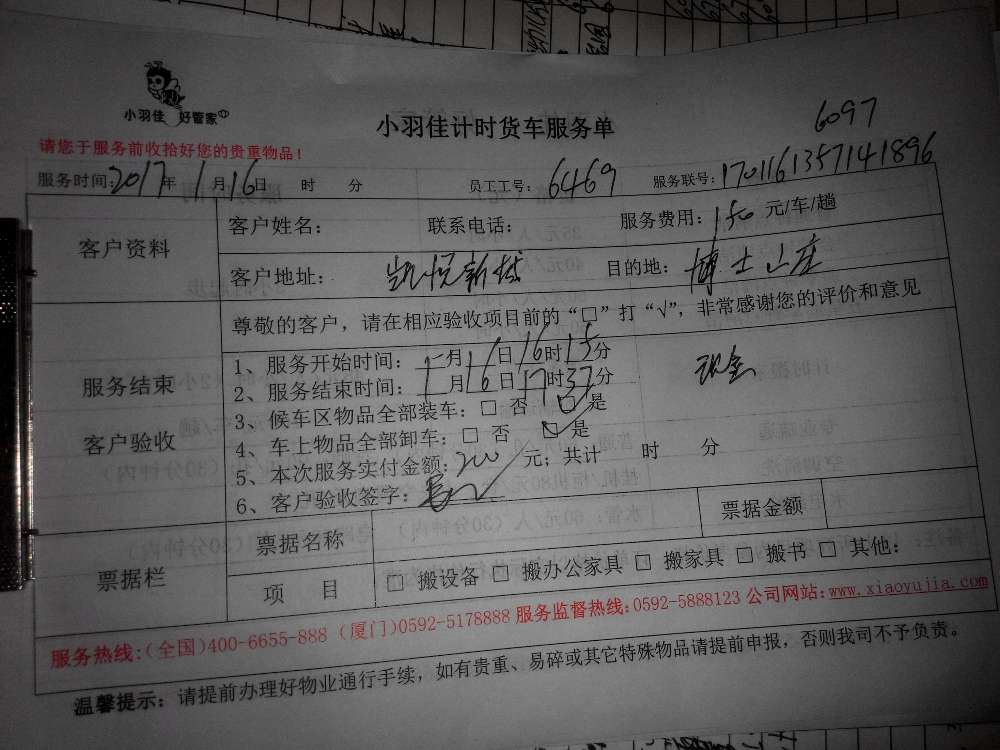 小羽佳 好管家
小羽佳计时货车服务单
6097
请您于服务前收拾好您的贵重物品！
服务时间:2017年1月16日 时 分 员工工号:6469 服务联号:1701161357141896
客户资料
客户姓名: 联系电话: 服务费用:150元/车/趟
客户地址: 凯悦新城 目的地: 博士山庄
服务结束
客户验收
尊敬的客户，请在相应验收项目前的“□”打“√”，非常感谢您的评价和意见
1、服务开始时间：1月16日16时15分
2、服务结束时间：1月16日17时37分
现金
3、候车区物品全部装车：□ 否 □是
4、车上物品全部卸车：□ 否 □是
5、本次服务实付金额:200元；共计 时 分
6、客户验收签字：
票据栏
票据名称 票据金额
项 目 □ 搬设备 □ 搬办公家具 □ 搬家具 □ 搬书 □ 其他：
服务热线:(全国)400-6655-888 (厦门)0592-5178888 服务监督热线:0592-5888123 公司网站:www.xiaoyujia.com
温馨提示：请提前办理好物业通行手续，如有贵重、易碎或其它特殊物品请提前申报，否则我司不予负责。